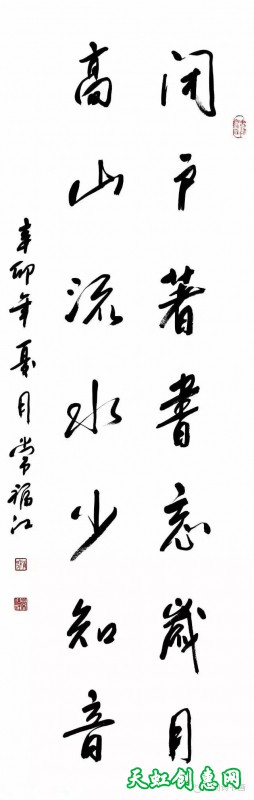 闭户著书忘岁月
高山流水少知音
辛卯年夏月常福江
天虹创惠网